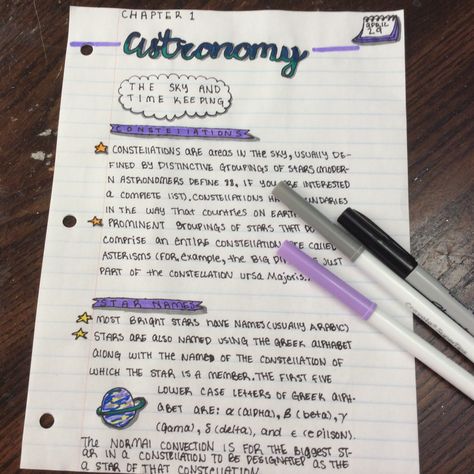 CHAPTER 1
APRIL
29
astronomy
THE SKY AND
TIME KEEPING
CONSTELLATIONS
CONSTELLATIONS ARE AREAS IN THE SKY, USUALLY DE-
FINED BY DISTINCTIVE GROUPINGS OF STARS (MODER-
N ASTRONOMERS DEFINE 88, IF YOU ARE INTERESTED
A COMPLETE LIST). CONSTELLATIONS HA UNDARIES
IN THE WAY THAT COUNTRIES ON EARTH
PROMINENT GROUPINGS OF STARS THAT DO
COMPRISE AN ENTIRE CONSTELLATION ARE CALLED
ASTERISMS (FOR, EXAMPLE, THE BIG DI JUST
PART OF THE CONSTELLATION URSA MAJORIS.
STAR NAMES
MOST BRIGHT STARS HAVE NAMES (USUALLY ARABIC)
STARS ARE ALSO NAMED USING THE GREEK ALPHABET
ALONG WITH THE NAMED OF THE CONSTELLATION OF
WHICH THE STAR IS A MEMBER. THE FIRST FIVE
LOWER CASE LETTERS OF GREEK ALPH-
ABET ARE: α (ALPHA), β (BETA), γ
(GAMA), δ (DELTA), AND ϵ (EPILSON).
THE NORMAL CONVECTION IS FOR THE BIGGEST ST-
AR IN A CONSTELLATION TO BE DESIGNATED AS THE
A STAR OF THAT CONSTELLATION